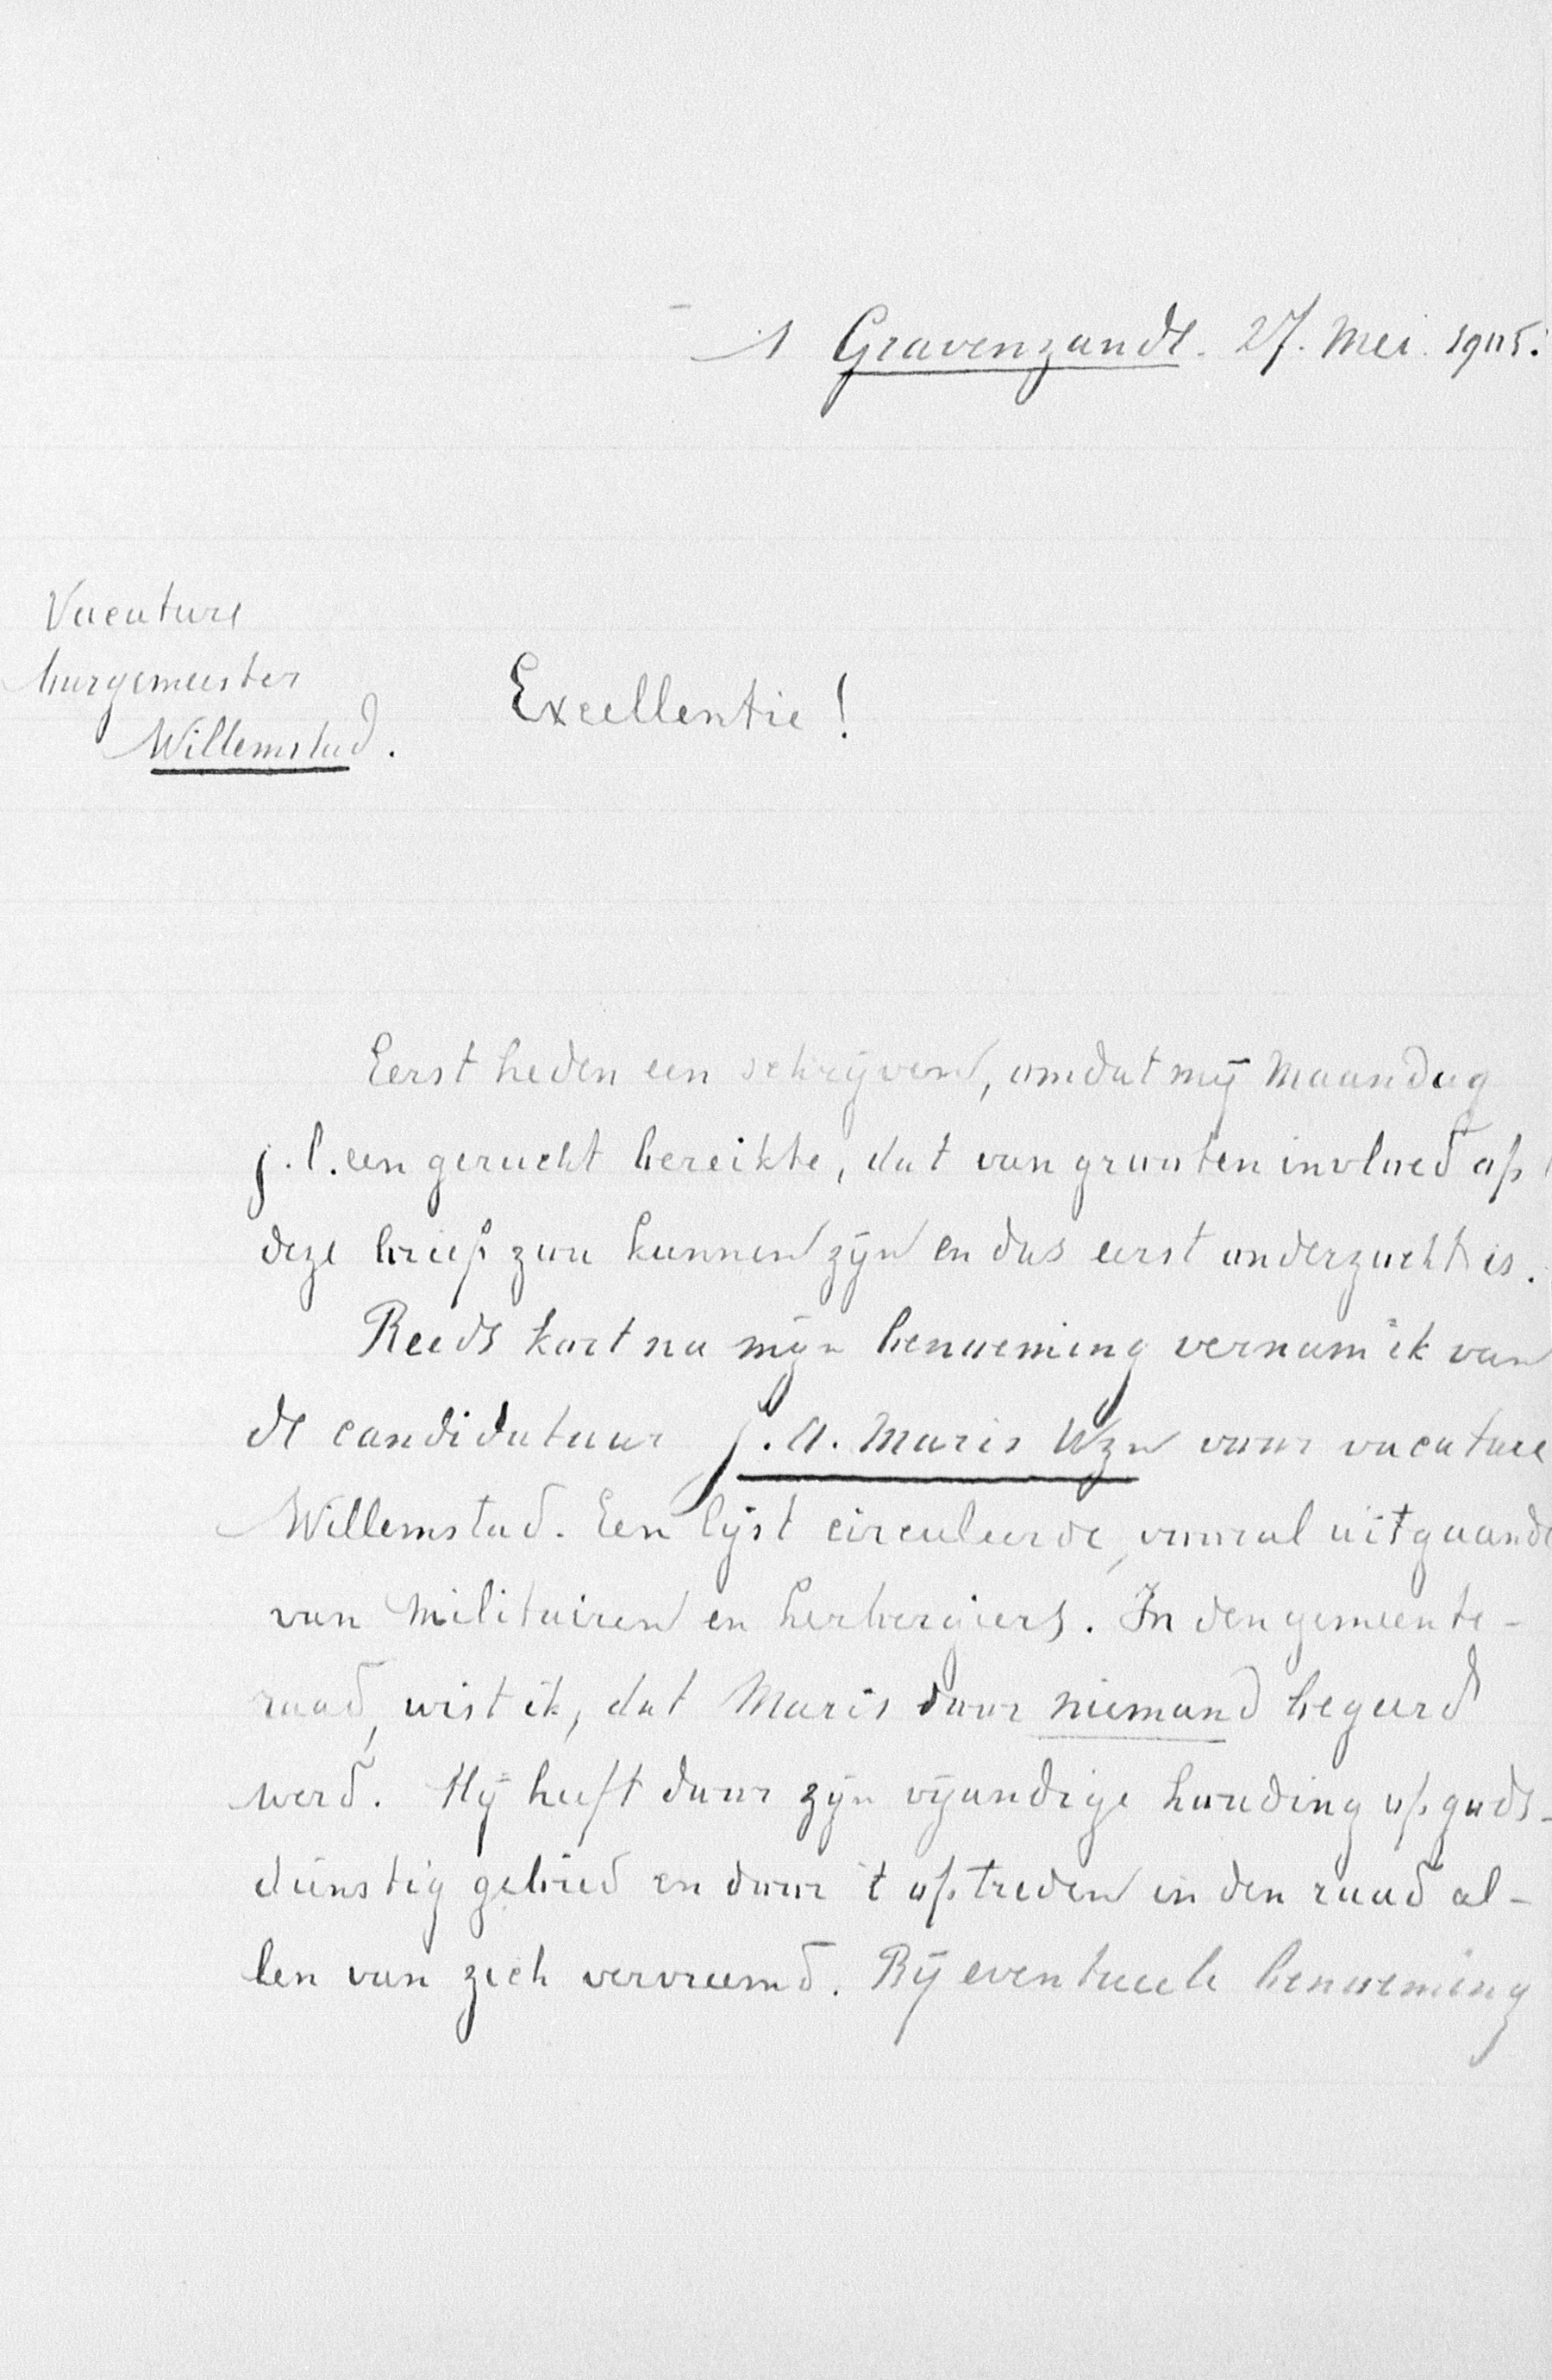 's Gravenzande. 27. Mei. 1905.
Vacature
burgemeester
Willemstad.
Excellentie!
Eerst heden een schrijven, omdat mij Maandag
j.l. een gerucht bereikte, dat van grooten invloed op
deze brief zou kunnen zijn en dus eerst onderzocht is.
Reeds kort na mijn benoeming vernam ik van
de candidatuur J. A. Maris Wzn voor vacature
Willemstad. Een lijst circuleerde, vooral uitgaande
van militairen en herbergiers. In den gemeente-
raad, wist ik, dat Maris door niemand begeerd
werd. Hij heeft door zijn vijandige houding op gods-
dienstig gebied en door 't optreden in den raad al-
len van zich vervreemd. Bij eventueele benoeming